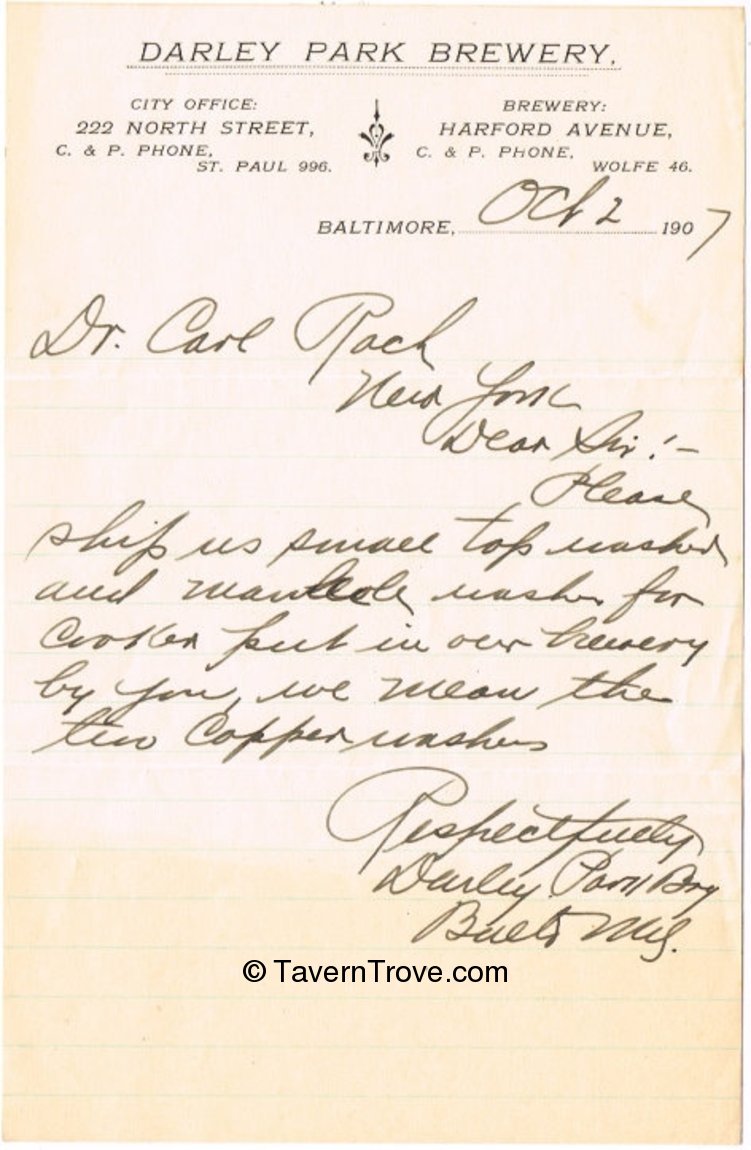 DARLEY PARK BREWERY.
CITY OFFICE:
222 NORTH STREET,
C. & P. PHONE,
ST. PAUL 996.
BREWERY:
HARFORD AVENUE,
C. & P. PHONE,
WOLFE 46.
BALTIMORE, Oct 2 1907
Dr. Carl Rach
New York
Dear Sir:-
Please
ship us small top washer
and manhole washer for
Cooker put in our brewery
by you, we mean the
two Copper washers
Respectfully
Darley Park Bry
Balto Md.
© TavernTrove.com